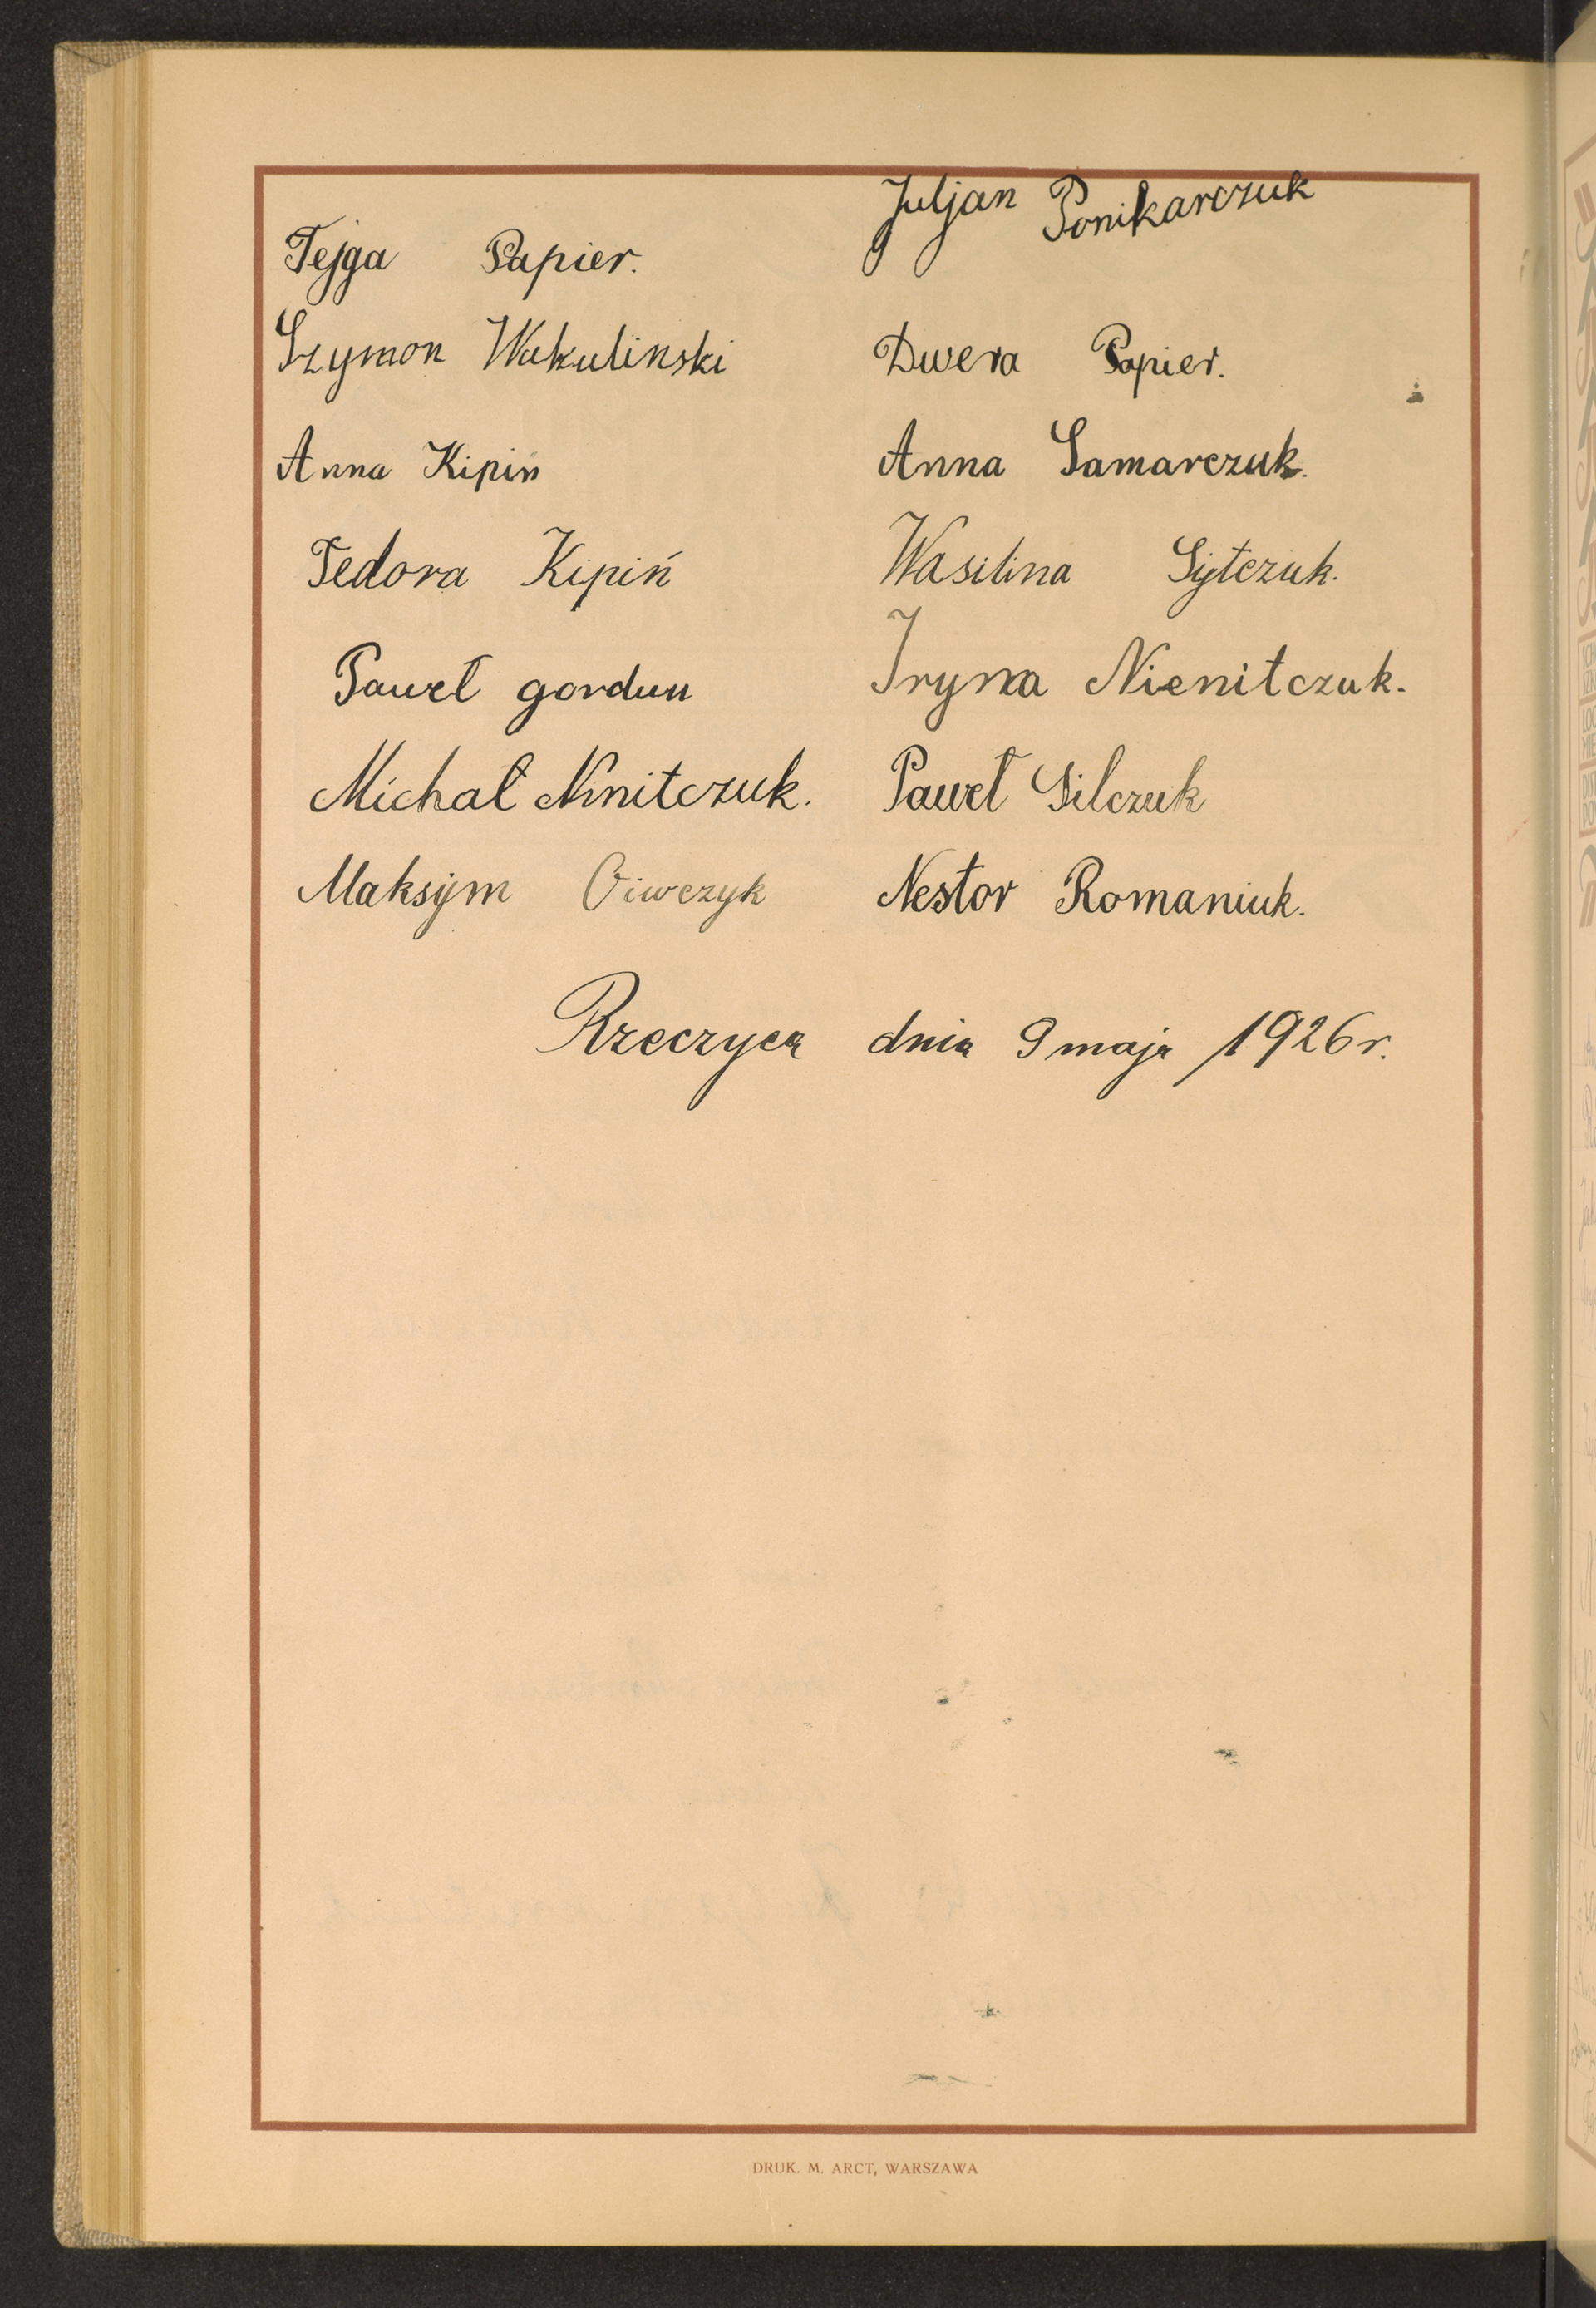 Juljan Ponikarczuk
Fejga Papier.
Szymon Wakulinski
Dwera Papier.
Anna Kipiń
Anna Samarczuk.
Fedora Kipiń
Wasilina Sytczuk.
Paweł gordun
Iryna Nienitczuk.
Michał Ninitczuk.
Paweł Silczuk
Maksym Oiwczyk
Nestor Romaniuk.
Rzeczyca dnia 9 maja 1926 r.
DRUK. M. ARCT, WARSZAWA